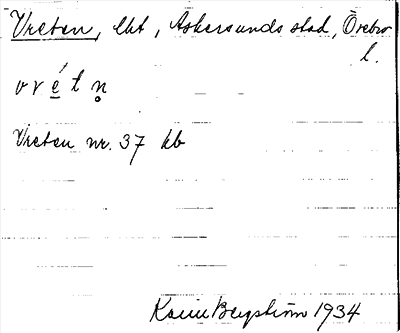 Vreten, lht, Askersunds stad, Örebro
l.
vré̲tn̥
Vreten nr. 37 kb
Karin Bergström 1934